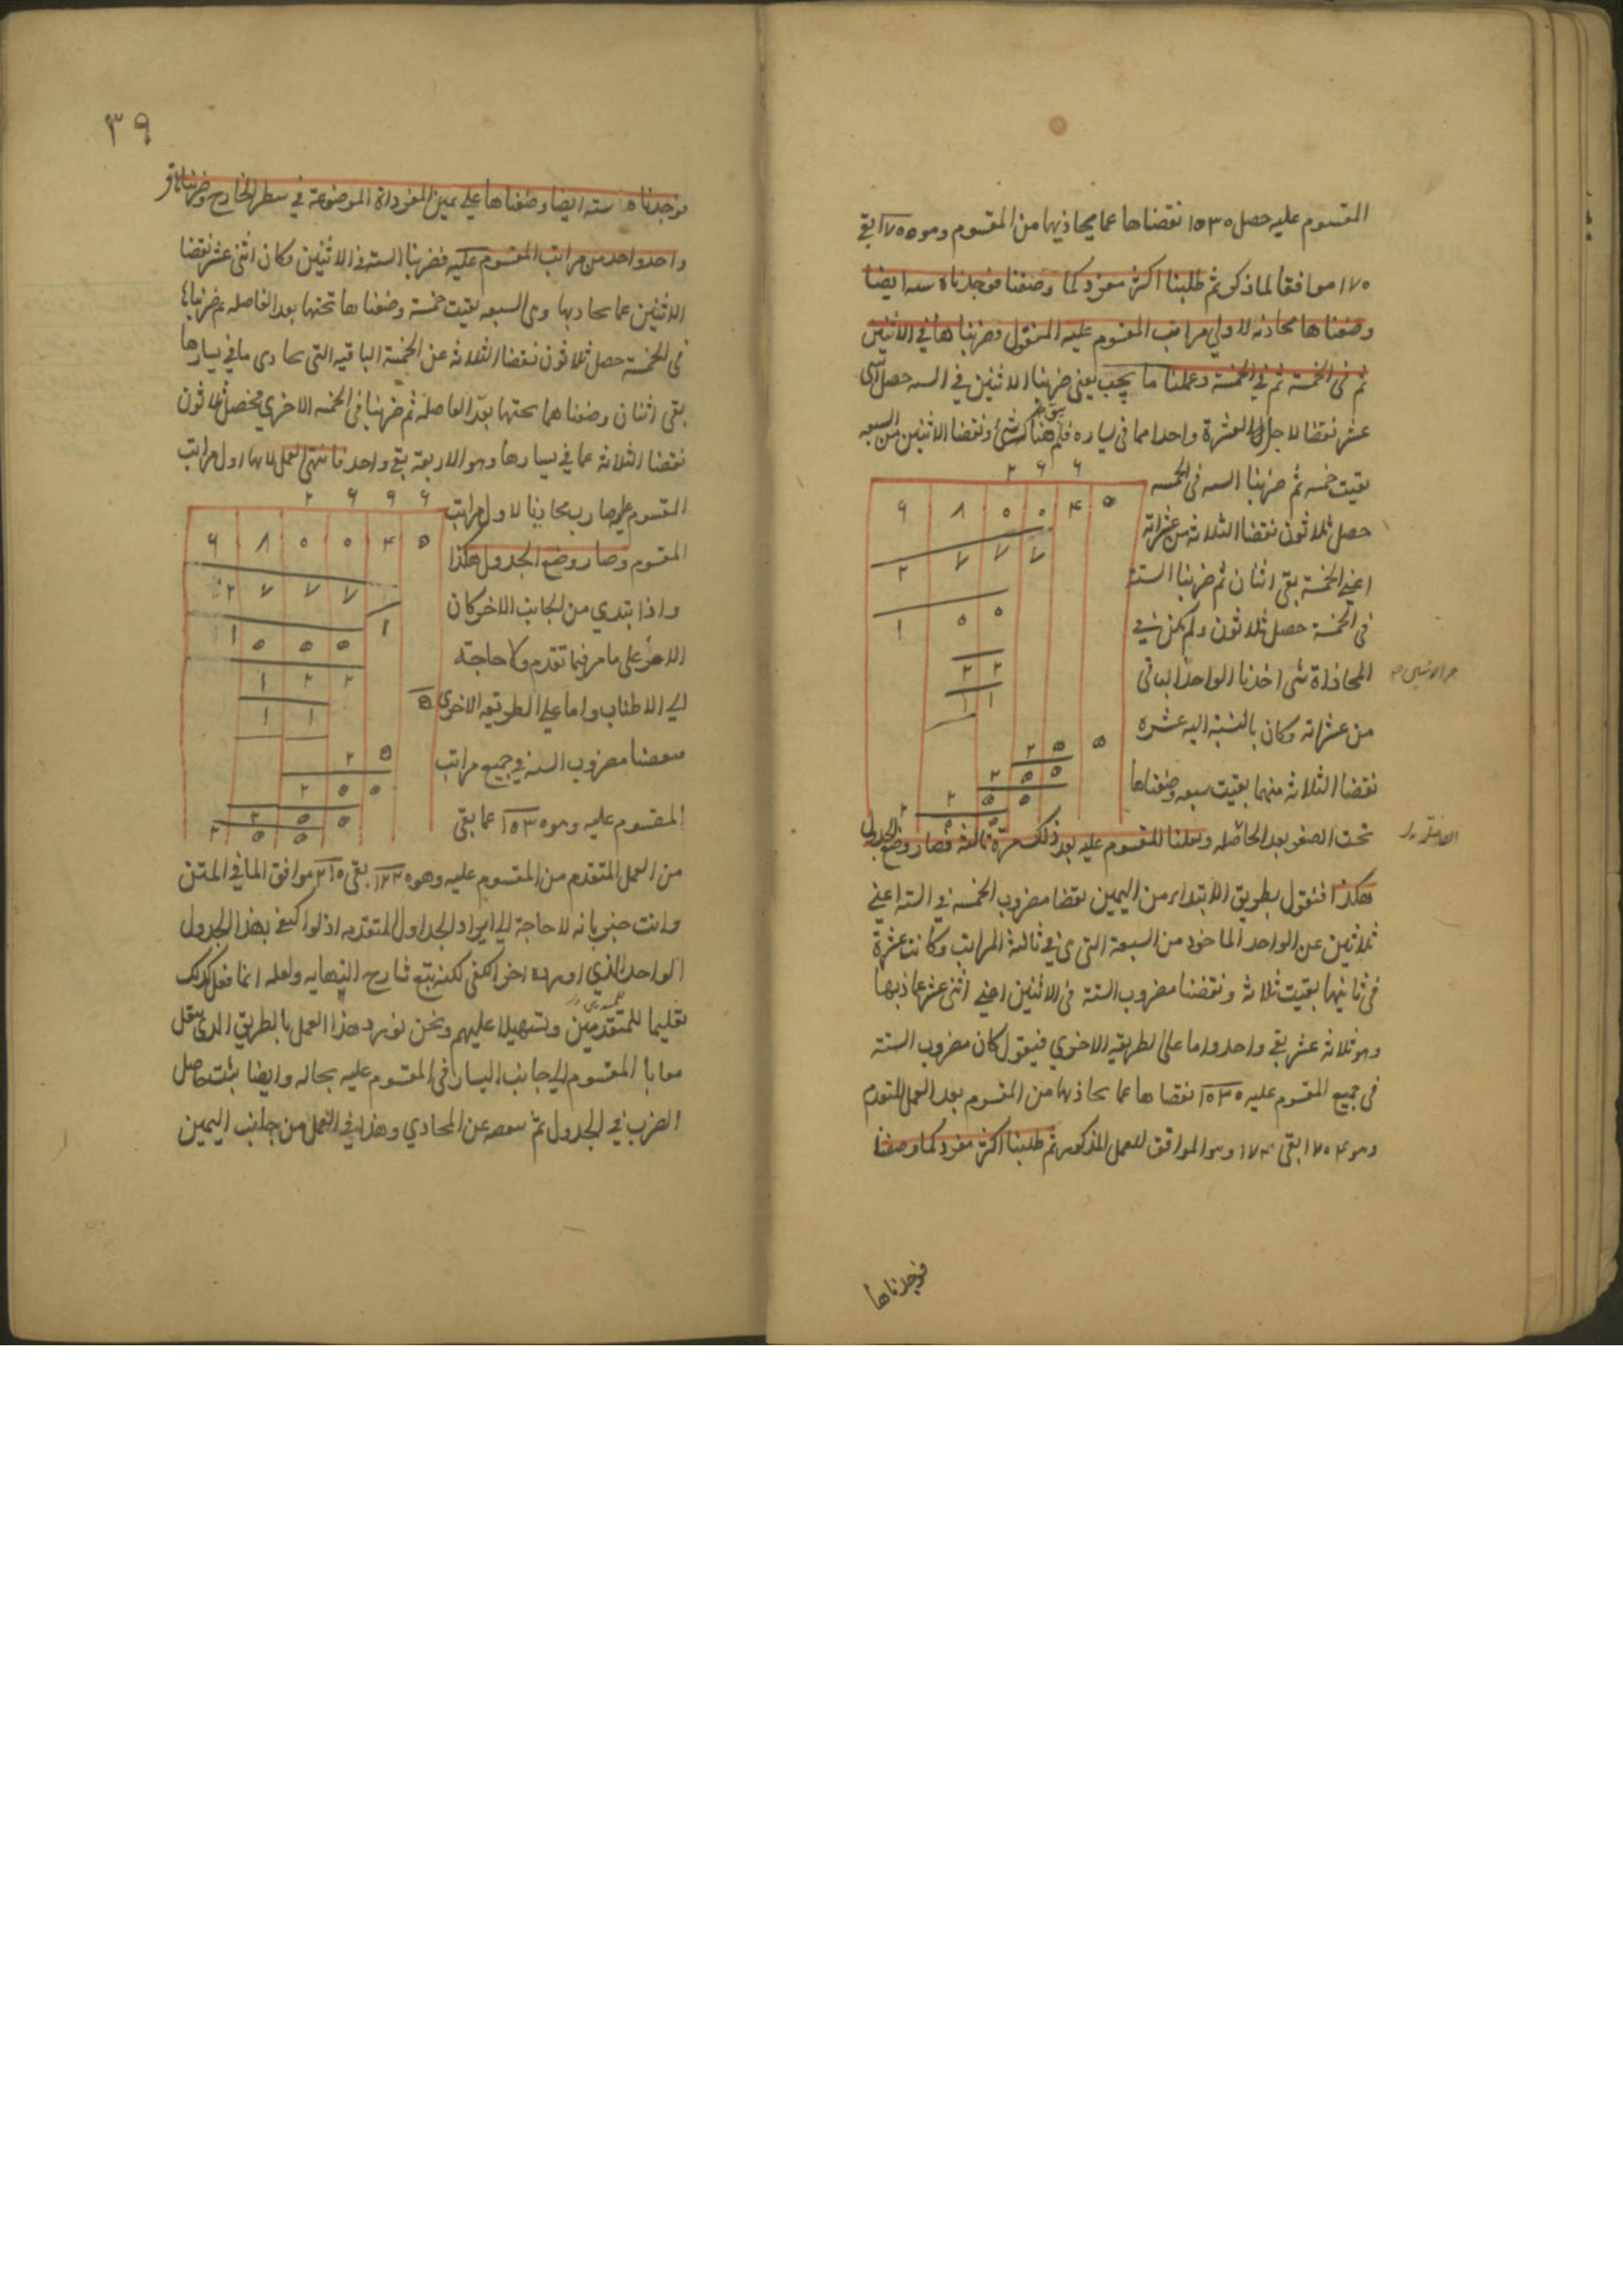 المقسوم عليه حصل ١٥٣٠ نقضناها عما يحاذيها من المقسوم وهو ١٧٠٥٥ بقى
١٧٠ موافقا لما ذكر ثم طلبنا اكثر مفرد كما وصفنا فوجدناه سته ايضا
وضعناها محاذيه لاولى مراتب المقسوم عليه المنقول وضربناها في الاثنين
ثم في الخمسة ثم في الخمسة وعملنا ما يجب يعني ضربنا الاثنين في السته حصل اثنى
عشر نقضنا لاجل العشرة واحدا مما في يساره فلم يبق هناك شئ ونقضنا الاثنين من السبعه
بقيت خمسه ثم ضربنا السته في الخمسه
حصل ثلاثون نقضنا الثلاثة من عشراته
اعني الخمسة بقى اثنان ثم ضربنا الستة
في الخمسة حصل ثلاثون ولم يكن في
المحاذاة شى اخذنا الواحد الباقي
من عشراته وكان بالنسبة اليه عشره
نقضنا الثلاثة منهما بقيت سبعه وضعناها
تحت الصفر بعد الفاصله ونقلنا المقسوم عليه بعد ذلك مرة ثالثة فصار وضع الجدول
هكذا فنقول بطريق الابتداء من اليمين نقضنا مضروب الخمسة في الستة اعني
ثلاثين عن الواحد الماخوذ من السبعة التى في ثالثة المراتب وكانت عشرة
في ثانيها بقيت ثلاثة ونقضنا مضروب الستة في الاثنين اعني اثنى عشر عما يحاذيها
وهو ثلاثة عشر بقى واحد واما على الطريقه الاخرى فنقول كان مضروب الستة
في جميع المقسوم عليه ١٥٣٠ نقضناها عما يحاذيها من المقسوم بعد العمل المتقدم
وهو ١٧٠٤ بقى ١٧٤ وهو الموافق للعمل المذكور ثم طلبنا اكثر مفرد كما وصفنا
فوجدناها
٢ ٦ ٦
٦ ٨ ٥ ٥ ٤ ٥
٢ ٧ ٧ ٧
١ ٥ ٥
٢ ٢
١ ١
٢ ٥ ٥
٢ ٥ ٥
٢ ٥ ٥
٣٩
فوجدناه سته ايضا وضعناها على يمين المفرداة الموضوعة في سطر الخارج وضربناها في
واحد واحد من مراتب المقسوم عليه فضربنا السته في الاثنين وكان اثنى عشر نقضنا
الاثنين عما يحاذيها وهى السبعه بقيت خمسة وضعناها تحتها بعد الفاصله ثم ضربناها
في الخمسة حصل ثلاثون نقضنا الثلاثة عن الخمسة الباقيه التى تحاذى ما في يسارها
بقى اثنان وضعناهما تحتها بعد الفاصلة ثم ضربنا في الخمسه الاخرى فحصل ثلاثون
نقضنا الثلاثة عما في يسارها وهو الاربعة بقى واحد فانتهى العمل لانها اول مراتب
المقسوم عليه صارت محاذيا لاول مراتب
المقسوم وصار وضع الجدول هكذا
واذا ابتدى من الجانب الاخر كان
الامر على ما مر فيما تقدم ولا حاجة
الى الاطناب واما على الطريقه الاخرى
نقضنا مضروب السته في جميع مراتب
المقسوم عليه وهو ١٥٣٠ عما بقى
٢ ٦ ٩ ٦
٦ ٨ ٥ ٥ ٤ ٥
٢ ٧ ٧ ٧
١ ٥ ٥ ٥ ١
١ ٢ ٢
١ ١
٢ ٥
٢ ٥ ٥
٢ ٥ ٥
٢ ٥ ٥
من العمل المتقدم من المقسوم عليه وهو ١٧٤٥ بقى ٢١٥ موافق الما في المتن
وانت خبير بانه لا حاجة الى ايراد الجداول المتقدمه اذ لو اكتفى بهذا الجدول
الواحد الذي اورده اخرا كفى لكنه تبع شارح النهايه ولعله انما فعل كذلك
تعليما للمتقدمين وتسهيلا عليهم ونحن نورد هذا العمل بالطريق الذى ينقل
المقسوم الى جانب اليسار في المقسوم عليه بحاله وايضا يثبت حاصل
الضرب في الجدول ثم ينقصه عن المحاذي وهذا في العمل من جانب اليمين